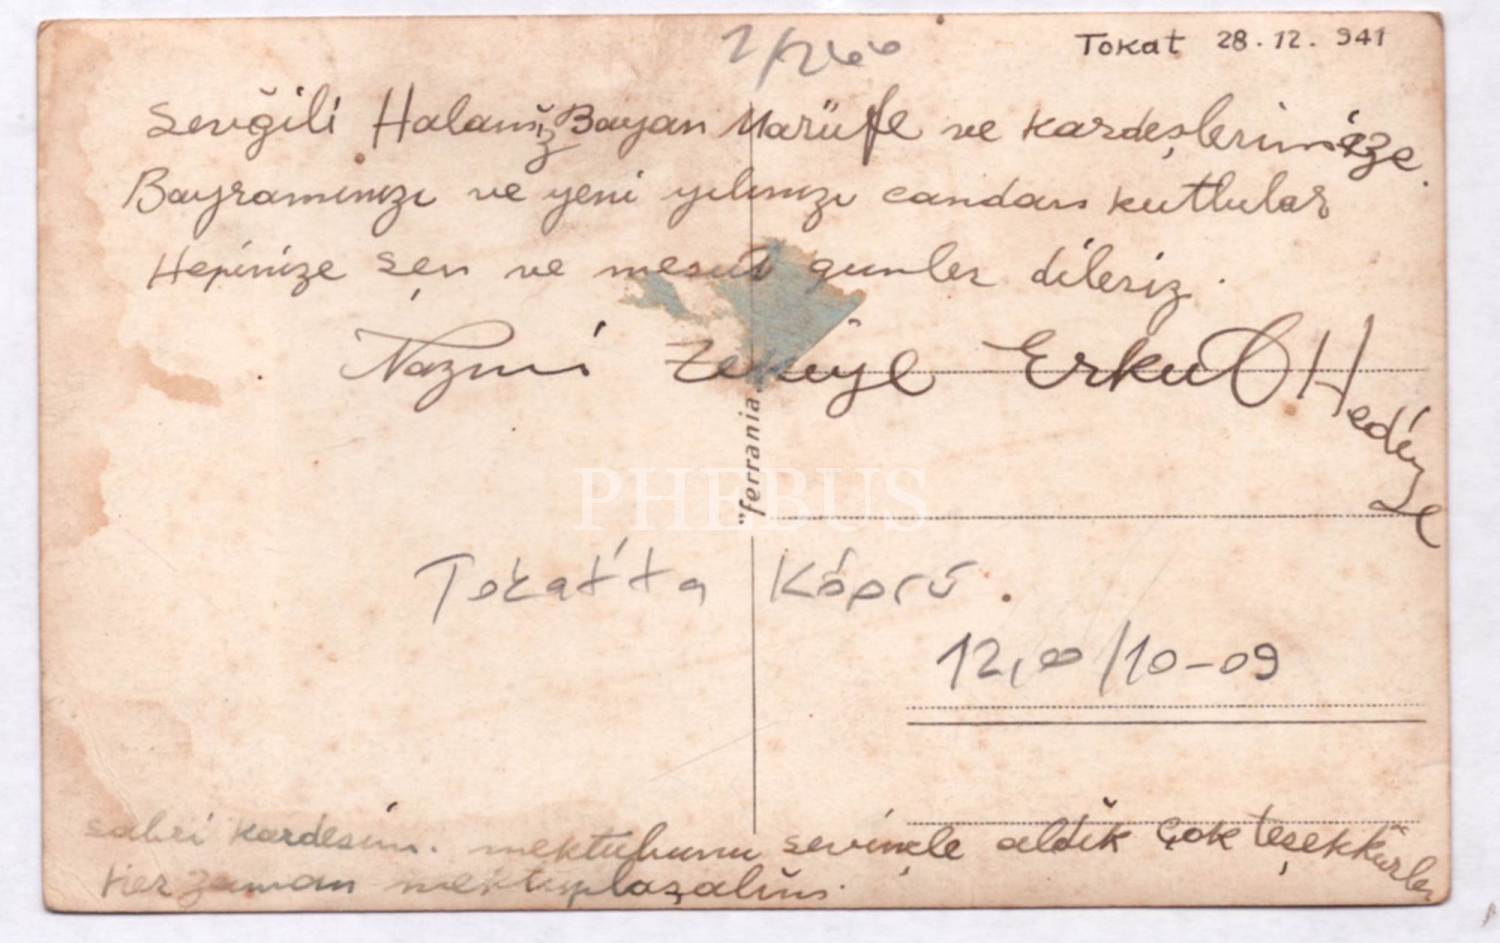 Tokat 28.12.941
Sevğili Halamız Bayan Marüfe ve kardeşlerimize
Bayramınızı ve yeni yılınızı candan kutlular
Hepinize şen ve mesut günler dileriz.
Nazmi Zekiye Erkul Hediye
"ferrania"
PHEBUS
Tokat'ta Köprü.
12,00/10-09
sabri kardeşim. mektubunu sevinçle aldık Çok teşekkürler
her zaman mektuplaşalım.